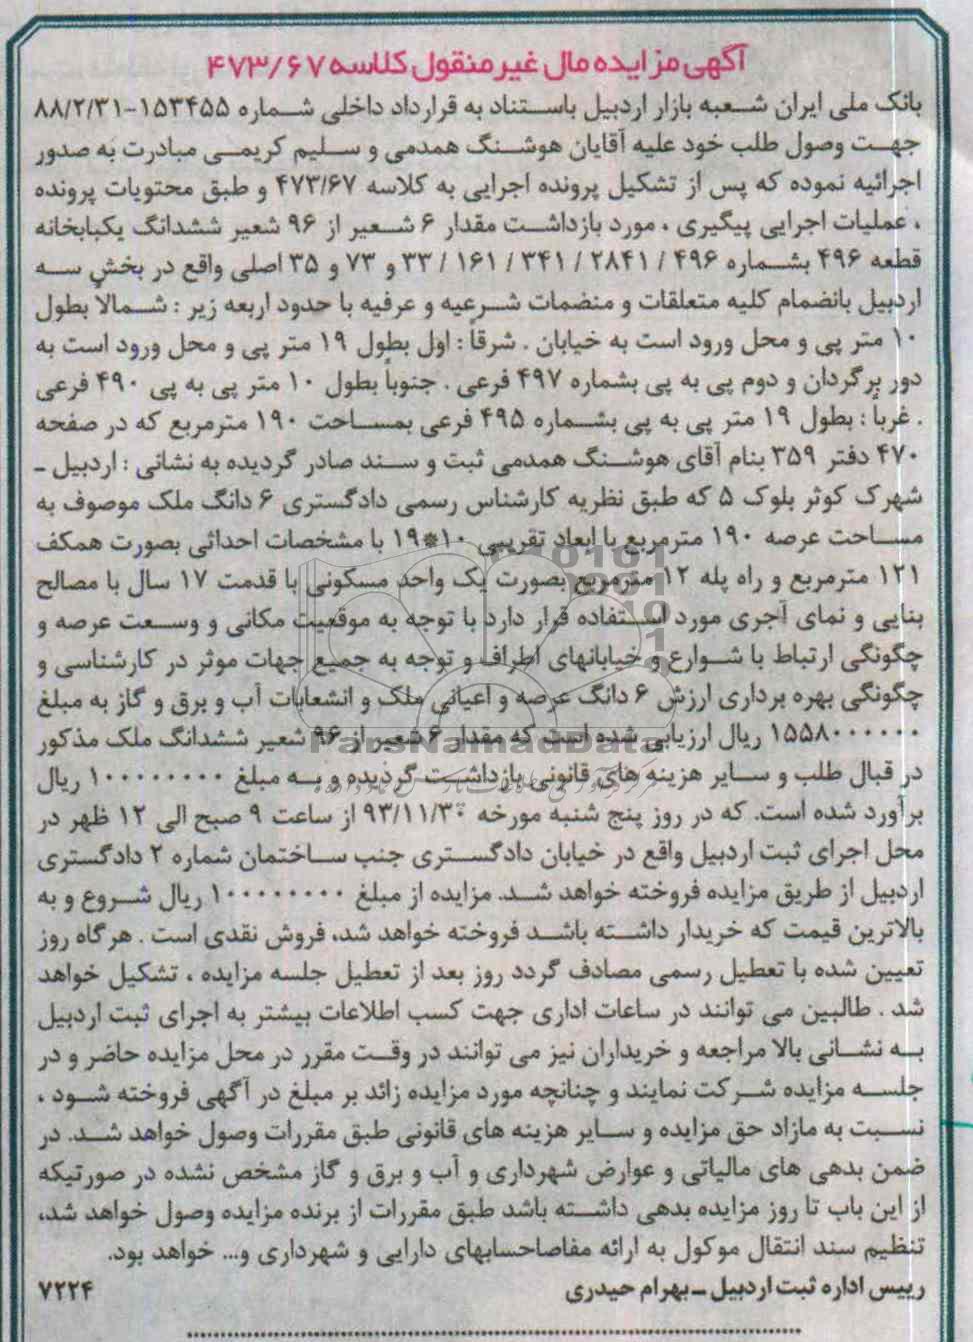 آگهی مزایده مال غیر منقول کلاسه ۴۷۳/۶۷
بانک ملی ایران شعبه بازار اردبیل باستناد به قرارداد داخلی شماره ۱۵۳۴۵۵-۸۸/۲/۳۱
جهت وصول طلب خود علیه آقایان هوشنگ همدمی و سلیم کریمی مبادرت به صدور
اجرائیه نموده که پس از تشکیل پرونده اجرایی به کلاسه ۴۷۳/۶۷ و طبق محتویات پرونده
، عملیات اجرایی پیگیری ، مورد بازداشت مقدار ۶ شعیر از ۹۶ شعیر ششدانگ یکبابخانه
قطعه ۴۹۶ بشماره ۴۹۶ / ۲۸۴۱ / ۳۴۱ / ۱۶۱ / ۳۳ و ۷۳ و ۳۵ اصلی واقع در بخش سه
اردبیل بانضمام کلیه متعلقات و منضمات شرعیه و عرفیه با حدود اربعه زیر : شمالا بطول
۱۰ متر پی و محل ورود است به خیابان . شرقاً : اول بطول ۱۹ متر پی و محل ورود است به
دور برگردان و دوم پی به پی بشماره ۴۹۷ فرعی . جنوباً بطول ۱۰ متر پی به پی ۴۹۰ فرعی
. غرباً : بطول ۱۹ متر پی به پی بشماره ۴۹۵ فرعی بمساحت ۱۹۰ مترمربع که در صفحه
۴۷۰ دفتر ۳۵۹ بنام آقای هوشنگ همدمی ثبت و سند صادر گردیده به نشانی : اردبیل -
شهرک کوثر بلوک ۵ که طبق نظریه کارشناس رسمی دادگستری ۶ دانگ ملک موصوف به
مساحت عرصه ۱۹۰ مترمربع با ابعاد تقریبی ۱۰*۱۹ با مشخصات احداثی بصورت همکف
۱۲۱ مترمربع و راه پله ۱۲ مترمربع بصورت یک واحد مسکونی با قدمت ۱۷ سال با مصالح
بنایی و نمای آجری مورد استفاده قرار دارد با توجه به موقعیت مکانی و وسعت عرصه و
چگونگی ارتباط با شوارع و خیابانهای اطراف و توجه به جمیع جهات موثر در کارشناسی و
چگونگی بهره برداری ارزش ۶ دانگ عرصه و اعیانی ملک و انشعابات آب و برق و گاز به مبلغ
۱۵۵۸۰۰۰۰۰۰ ریال ارزیابی شده است که مقدار ۶ شعیر از ۹۶ شعیر ششدانگ ملک مذکور
در قبال طلب و سایر هزینه های قانونی بازداشت گردیده و به مبلغ ۱۰۰۰۰۰۰۰۰ ریال
برآورد شده است. که در روز پنج شنبه مورخه ۹۳/۱۱/۳۰ از ساعت ۹ صبح الی ۱۲ ظهر در
محل اجرای ثبت اردبیل واقع در خیابان دادگستری جنب ساختمان شماره ۲ دادگستری
اردبیل از طریق مزایده فروخته خواهد شد. مزایده از مبلغ ۱۰۰۰۰۰۰۰۰ ریال شروع و به
بالاترین قیمت که خریدار داشته باشد فروخته خواهد شد، فروش نقدی است . هرگاه روز
تعیین شده با تعطیل رسمی مصادف گردد روز بعد از تعطیل جلسه مزایده ، تشکیل خواهد
شد . طالبین می توانند در ساعات اداری جهت کسب اطلاعات بیشتر به اجرای ثبت اردبیل
به نشانی بالا مراجعه و خریداران نیز می توانند در وقت مقرر در محل مزایده حاضر و در
جلسه مزایده شرکت نمایند و چنانچه مورد مزایده زائد بر مبلغ در آگهی فروخته شود ،
نسبت به مازاد حق مزایده و سایر هزینه های قانونی طبق مقررات وصول خواهد شد. در
ضمن بدهی های مالیاتی و عوارض شهرداری و آب و برق و گاز مشخص نشده در صورتیکه
از این باب تا روز مزایده بدهی داشته باشد طبق مقررات از برنده مزایده وصول خواهد شد،
تنظیم سند انتقال موکول به ارائه مفاصاحسابهای دارایی و شهرداری و... خواهد بود.
رییس اداره ثبت اردبیل - بهرام حیدری
۷۲۲۴
ParsNamadData